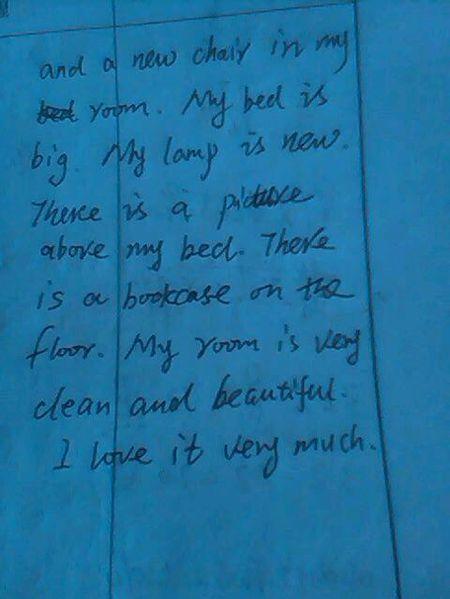 and a new chair in my
bed room. My bed is
big. My lamp is new.
There is a picture
above my bed. There
is a bookcase on the
floor. My room is very
clean and beautiful.
I love it very much.